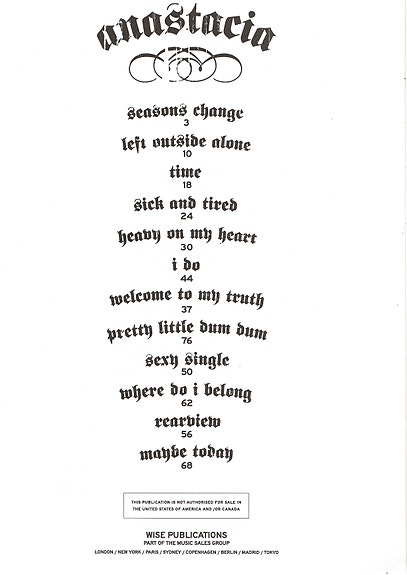 anastacia
seasons change
3
left outside alone
10
time
18
sick and tired
24
heavy on my heart
30
i do
44
welcome to my truth
37
pretty little dum dum
76
sexy single
50
where do i belong
62
rearview
56
maybe today
68
THIS PUBLICATION IS NOT AUTHORISED FOR SALE IN
THE UNITED STATES OF AMERICA AND /OR CANADA
WISE PUBLICATIONS
PART OF THE MUSIC SALES GROUP
LONDON / NEW YORK / PARIS / SYDNEY / COPENHAGEN / BERLIN / MADRID / TOKYO